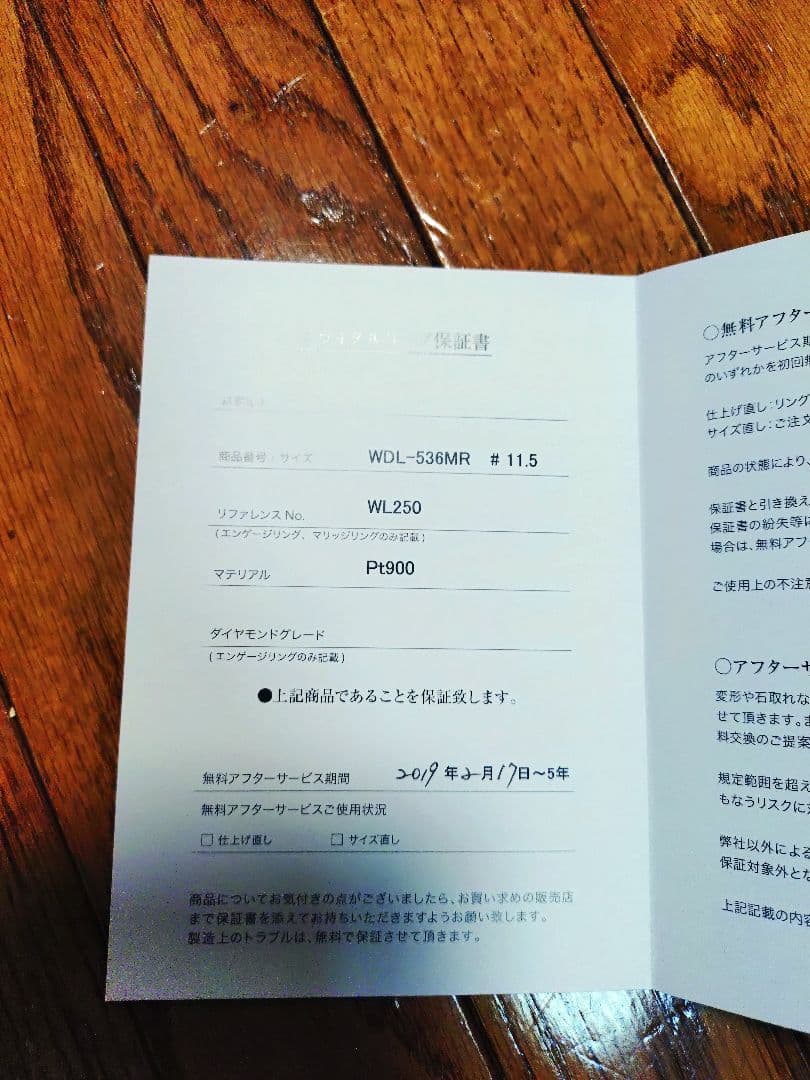 保証書
商品番号：サイズ WDL-536MR # 11.5
リファレンス No. WL250
(エンゲージリング、マリッジリングのみ記載)
マテリアル Pt900
ダイヤモンドグレード
(エンゲージリングのみ記載)
●上記商品であることを保証致します。
無料アフターサービス期間 2019年2月17日～5年
無料アフターサービスご使用状況
□ 仕上げ直し □ サイズ直し
商品についてお気付きの点がございましたら、お買い求めの販売店
まで保証書を添えてお持ちいただきますようお願い致します。
製造上のトラブルは、無料で保証させて頂きます。
○無料アフター
アフターサービス期
のいずれかを初回無
仕上げ直し：リング
サイズ直し：ご注文
商品の状態により、
保証書と引き換え
保証書の紛失等に
場合は、無料アフ
ご使用上の不注意
○アフターサ
変形や石取れな
せて頂きます。
料交換のご提案
規定範囲を超え
もなうリスクに
弊社以外による
保証対象外とな
上記記載の内容